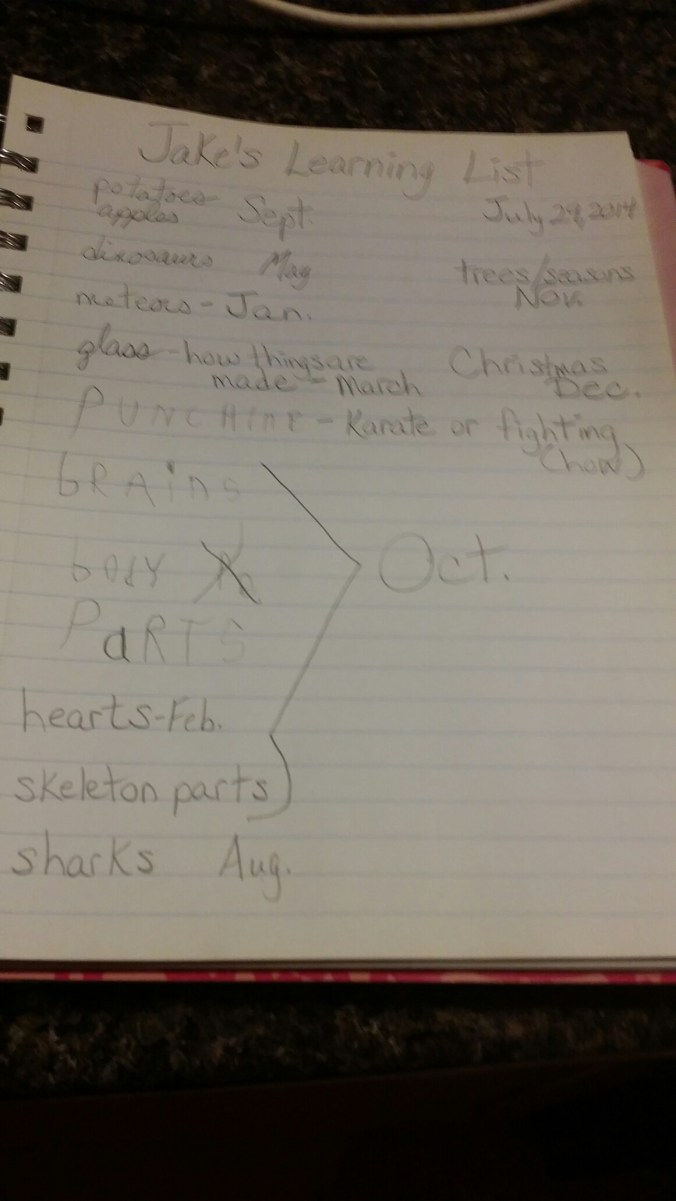 Jake's Learning List
July 29, 2014
potatoes
apples Sept.
dinosaurs May
trees/seasons
Nov.
meteors - Jan.
glass - how things are
made - March
Christmas
Dec.
PUNCHING - Karate or fighting
(how)
bRAiNS
bOdY
PaRTS
Oct.
hearts - Feb.
skeleton parts
sharks Aug.